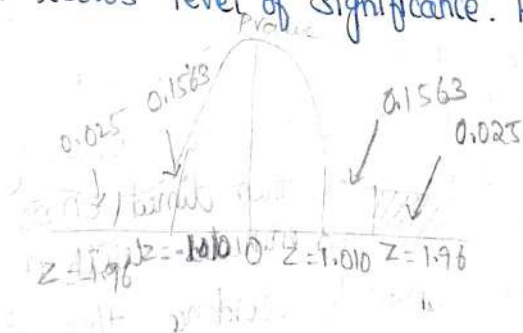 level of significance.
Pvalue
0.1563
0.025
0.1563
0.025
Z = -1.96 Z = -1.010 0 Z = 1.010 Z = 1.96